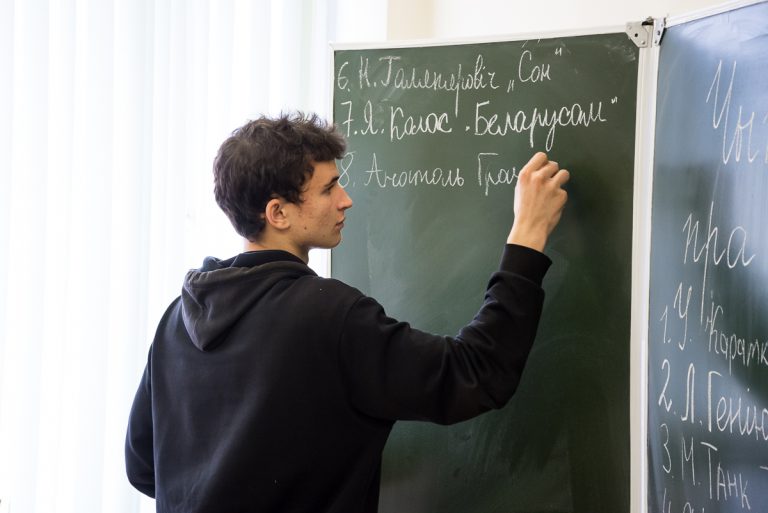 6. Н. Гальпяровіч „Сон“
7. Я. Колас „Беларусам“
8. Анатоль Гра
Чы
пра
1. У. Каратк
2. Л. Гені
3. М. Танк